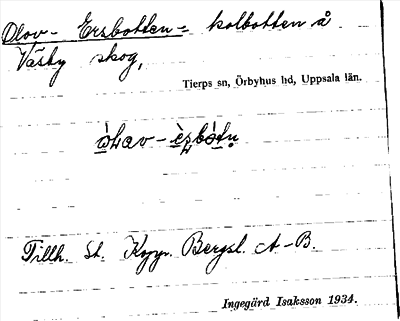 Olov-Ersbotten = kolbotten å
Väsby skog,
Tierps sn, Örbyhus hd, Uppsala län.
Tillh. St. Kopp. Bergsl. A-B.
Ingegärd Isaksson 1934.